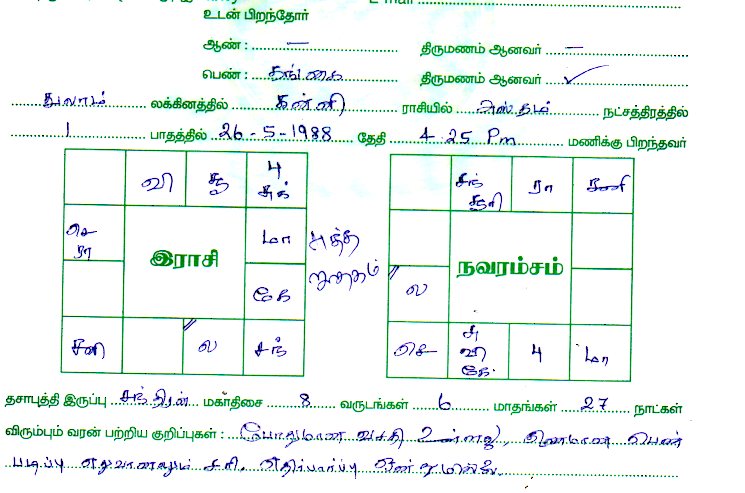 உடன் பிறந்தோர்
ஆண் : — திருமணம் ஆனவர் —
பெண் : தங்கை திருமணம் ஆனவர் ✓
துலாம் லக்கினத்தில் கன்னி ராசியில் அஸ்தம் நட்சத்திரத்தில்
1 பாதத்தில் 26-5-1988 தேதி 4.25 Pm மணிக்கு பிறந்தவர்
வி சூ பு சுக்
செ ரா
இராசி
மா
சுத்த ஜாதகம்
கே
சனி ல சந்
சந் சூரி ரா சனி
நவரம்சம்
ல
செ சு வி கே பு மா
தசாபுத்தி இருப்பு சந்திரன் மகா்திசை 8 வருடங்கள் 6 மாதங்கள் 27 நாட்கள்
விரும்பும் வரன் பற்றிய குறிப்புகள் : போதுமான வசதி உள்ள, குணமான பெண்
படிப்பு எதுவானாலும் சரி. எதிர்பார்ப்பு ஒன்றுமில்லை.